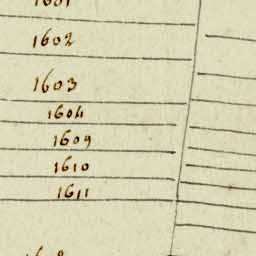 1602
1603
1604
1609
1610
1611